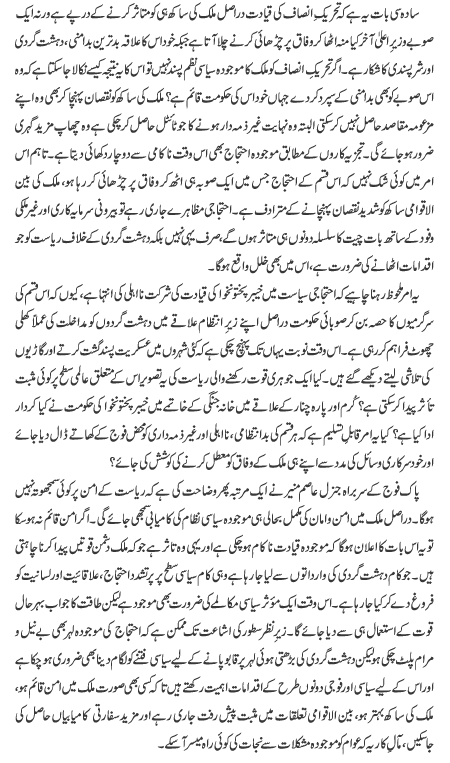 سادہ سی بات یہ ہے کہ تحریکِ انصاف کی قیادت دراصل ملک کی ساکھ ہی کو متاثر کرنے کے درپے ہے ورنہ ایک
صوبے وزیراعلیٰ آخر کیا منہ اٹھا کر وفاق پر چڑھائی کرنے چلا آتا ہے جبکہ خود اس کا علاقہ بدترین بدامنی، دہشت گردی
اور شرپسندی کا شکار ہے۔ اگر تحریکِ انصاف کو ملک کا موجودہ سیاسی نظم پسند نہیں تو اس کا یہ نتیجہ کیسے نکالا جاسکتا ہے کہ وہ
اس صوبے کو بھی بدامنی کے سپرد کر دے جہاں خود اس کی حکومت قائم ہے؟ ملک کی ساکھ کو نقصان پہنچا کر بھی وہ اپنے
مزعومہ مقاصد حاصل نہیں کرسکتی البتہ وہ نہایت غیر ذمہ دار ہونے کا جو ٹائٹل حاصل کرچکی ہے وہ چھاپ مزید گہری
ضرور ہو جائے گی۔ تجزیہ کاروں کے مطابق موجودہ احتجاج بھی اس وقت ناکامی سے دوچار دکھائی دیتا ہے۔ تاہم اس
امر میں کوئی شک نہیں کہ اس قسم کے احتجاج جس میں ایک صوبہ ہی اٹھ کر وفاق پر چڑھائی کر رہا ہو، ملک کی بین
الاقوامی ساکھ کو شدید نقصان پہنچانے کے مترادف ہے۔ احتجاجی مظاہرے جاری رہے تو بیرونی سرمایہ کاری اور غیرملکی
وفود کے ساتھ بات چیت کا سلسلہ دونوں ہی متاثر ہوں گے، صرف یہی نہیں بلکہ دہشت گردی کے خلاف ریاست کو جو
اقدامات اٹھانے کی ضرورت ہے، اس میں بھی خلل واقع ہوگا۔
یہ امر ملحوظ رہنا چاہیے کہ احتجاجی سیاست میں خیبر پختونخوا کی قیادت کی شرکت نااہلی کی انتہا ہے، کیوں کہ اس قسم کی
سرگرمیوں کا حصہ بن کر صوبائی حکومت دراصل اپنے زیرِ انتظام علاقے میں دہشت گردوں کو مداخلت کی عملاً کھلی
چھوٹ فراہم کر رہی ہے۔ اس وقت نوبت یہاں تک پہنچ چکی ہے کہ کئی شہروں میں عسکریت پسند گشت کرتے اور گاڑیوں
کی تلاشی لیتے دیکھے گئے ہیں۔ کیا ایک جوہری قوت رکھنے والی ریاست کی یہ تصویر اس کے متعلق عالمی سطح پر کوئی مثبت
تاثر پیدا کرسکتی ہے؟ کُرم اور پارہ چنار کے علاقے میں خانہ جنگی کے خاتمے میں خیبر پختونخوا کی حکومت نے کیا کردار
ادا کیا ہے؟ کیا یہ امر قابلِ تسلیم ہے کہ ہر قسم کی بدانتظامی، نااہلی اور غیر ذمہ داری کو محض فوج کے کھاتے ڈال دیا جائے
اور خود سرکاری وسائل کی مدد سے اپنے ہی ملک کے وفاق کو معطل کرنے کی کوشش کی جائے؟
پاک فوج کے سربراہ جنرل عاصم منیر نے ایک مرتبہ پھر وضاحت کی ہے کہ ریاست کے امن پر کوئی سمجھوتہ نہیں
ہوگا۔ دراصل ملک میں امن و امان کی مکمل بحالی ہی موجودہ سیاسی نظام کی کامیابی سمجھی جائے گی۔ اگر امن قائم نہ ہوسکا
تو یہ اس بات کا اعلان ہوگا کہ موجودہ قیادت ناکام ہو چکی ہے اور یہی وہ تاثر ہے جو کہ ملک دشمن قوتیں پیدا کرنا چاہتی
ہیں۔ جو کام دہشت گردی کی وارداتوں سے لیا جا رہا ہے وہی کام سیاسی سطح پر پرتشدد احتجاج، علاقائیت اور لسانیت کو
فروغ دے کر کیا جا رہا ہے۔ اس وقت ایک مؤثر سیاسی مکالمے کی ضرورت بھی موجود ہے لیکن طاقت کا جواب بہرحال
قوت کے استعمال ہی سے دیا جائے گا۔ زیرِ نظر سطور کی اشاعت تک ممکن ہے کہ احتجاج کی موجودہ لہر بھی بے نیل و
مرام پلٹ چکی ہو لیکن دہشت گردی کی بڑھتی ہوئی لہر پر قابو پانے کے لیے سیاسی فتنے کو لگام دینا بھی ضروری ہو چکا ہے
اور اس کے لیے سیاسی اور فوجی دونوں طرح کے اقدامات اہمیت رکھتے ہیں تاکہ کسی بھی صورت ملک میں امن قائم ہو،
ملک کی ساکھ بہتر ہو، بین الاقوامی تعلقات میں مثبت پیش رفت جاری رہے اور مزید سفارتی کامیابیاں حاصل کی
جاسکیں، مآلِ کار یہ کہ عوام کو موجودہ مشکلات سے نجات کی کوئی راہ میسر آسکے۔